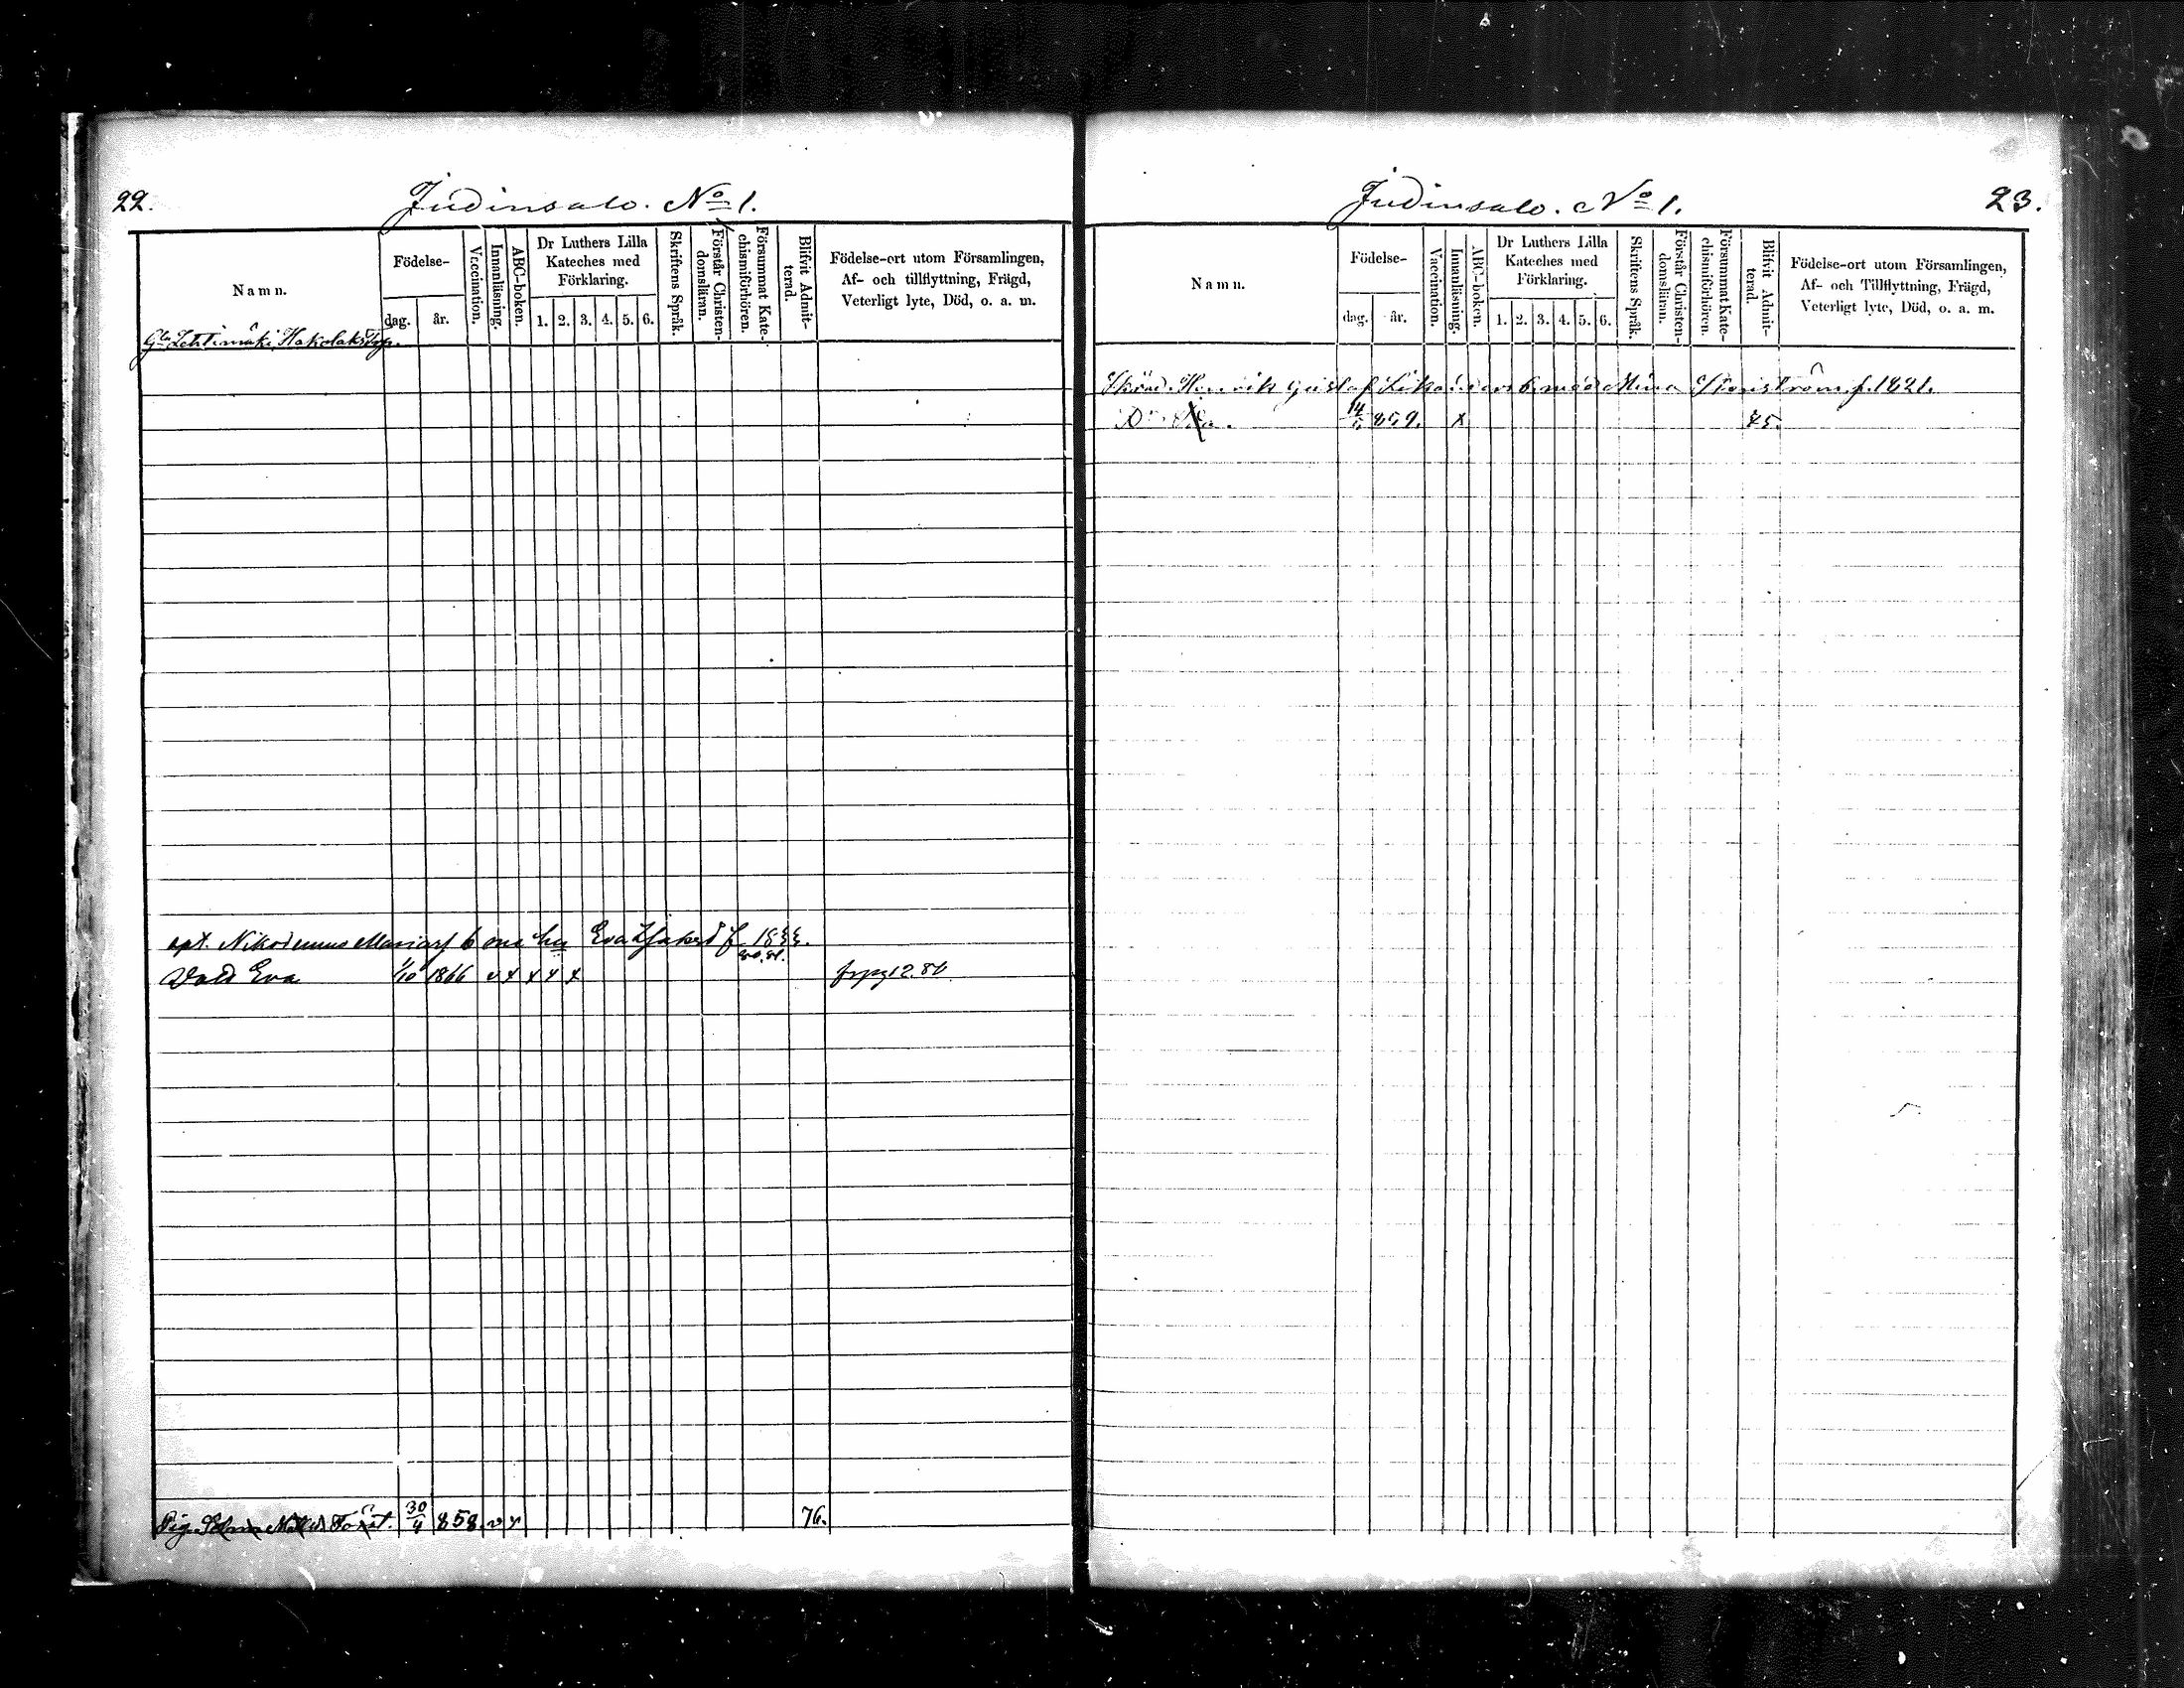 22.
Judinsalo. No 1.
Namn.
Födelse-
dag.
år.
Vaccination.
Innanläsning.
ABC-boken.
Dr Luthers Lilla Kateches med Förklaring.
1. 2. 3. 4. 5. 6.
Skriftens Språk.
Förstår Christendomsläran.
Försummat Katechismiförhören.
Blifvit Admitterad.
Födelse-ort utom Församlingen,
Af- och tillflyttning, Frägd,
Veterligt lyte, Död, o. a. m.
Lehtimäki Hakolaks Torp.
Nikodemus Eva f. 18
Eva 1/10 1866 x x x x
frpg 12.80
Pig. 30/4 858. v x 76.
Judinsalo. No 1.
23.
Namn.
Födelse-
dag.
år.
Vaccination.
Innanläsning.
ABC-boken.
Dr Luthers Lilla Kateches med Förklaring.
1. 2. 3. 4. 5. 6.
Skriftens Språk.
Förstår Christendomsläran.
Försummat Katechismiförhören.
Blifvit Admitterad.
Födelse-ort utom Församlingen,
Af- och Tillflyttning, Frägd,
Veterligt lyte, Död, o. a. m.
Henrik Gustaf med Mina Stenström f. 1821.
859. x 75.